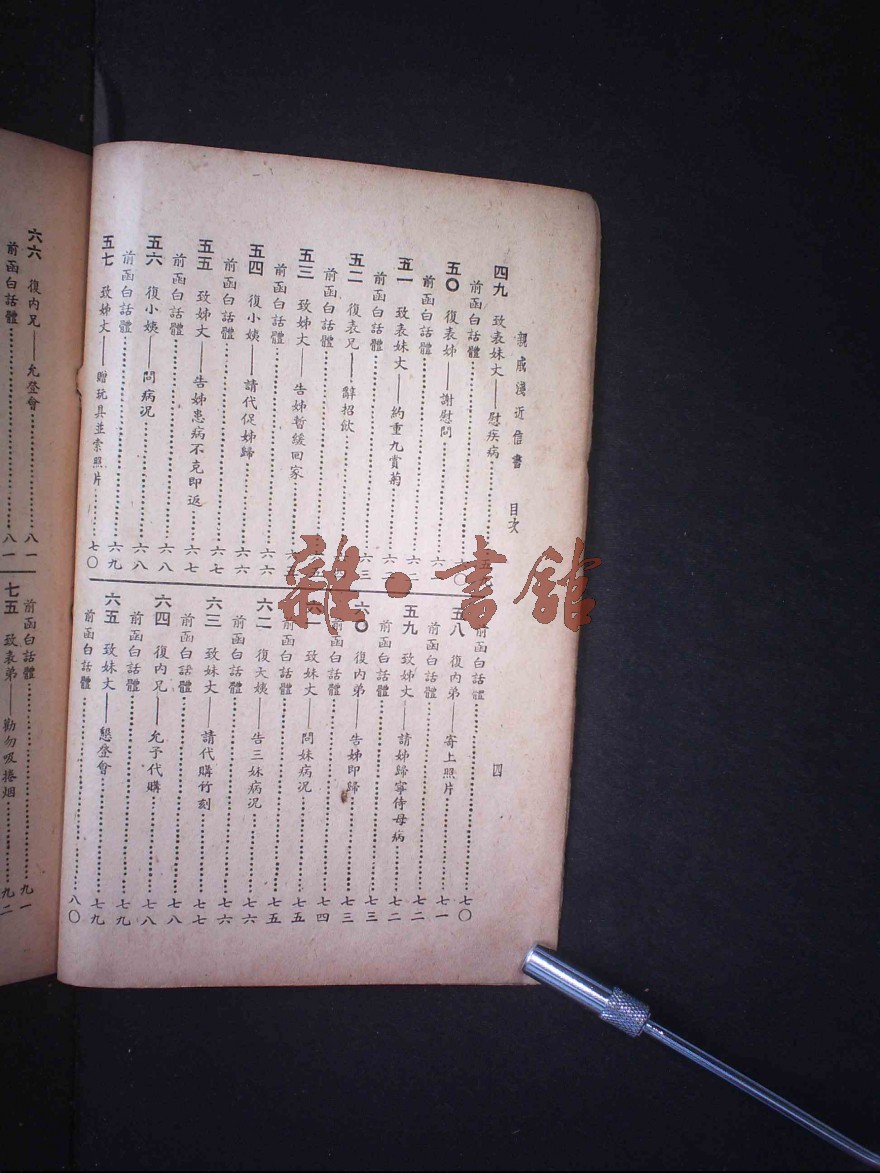 親戚淺近信書 目次 四
四九 致表妹丈——慰疾病……
前函白話體……
五〇 復表姊——謝慰問……
前函白話體……六二
五一 致表妹丈——約重九賞菊……
前函白話體……六三
五二 復表兄——辭招飲……
前函白話體……
五三 致姊丈——告姊暫緩回家……
前函白話體……六六
五四 復小姨——請代促姊歸……六六
前函白話體……六七
五五 致姊丈——告姊患病不克即返……六七
前函白話體……六八
五六 復小姨——問病況……六八
前函白話體……六九
五七 致姊丈——贈玩具並索照片……七〇
前函白話體……七〇
五八 復內弟——寄上照片……七一
前函白話體……七二
五九 致姊丈——請姊歸寧侍母病……七二
前函白話體……七三
六〇 復內弟——告姊即歸……七三
前函白話體……七四
六一 致妹丈——問妹病況……七五
前函白話體……七五
六二 復大姨——告三妹病況……七六
前函白話體……七六
六三 致妹丈——請代購竹刻……七七
前函白話體……七八
六四 復內兄——允予代購……七八
前函白話體……七九
六五 致妹丈——懇登會……七九
前函白話體……八〇
六六 復內兄——允登會……八一
前函白話體……八一
前函白話體……九一
七五 致表弟——勸勿吸捲烟……九二
雜·書館